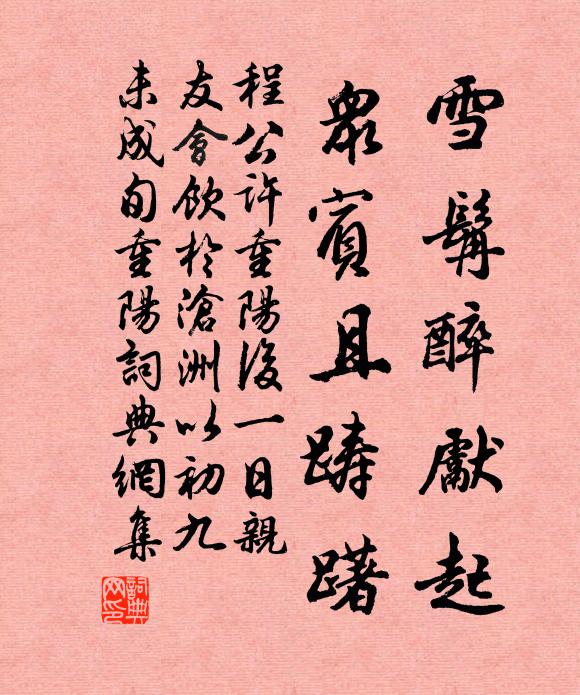 雪髯醉獻起
眾賓且踌躇
程公許重陽後一日親
友會飲於滄洲以初九
未成旬重陽詞典網集
詞典
网印